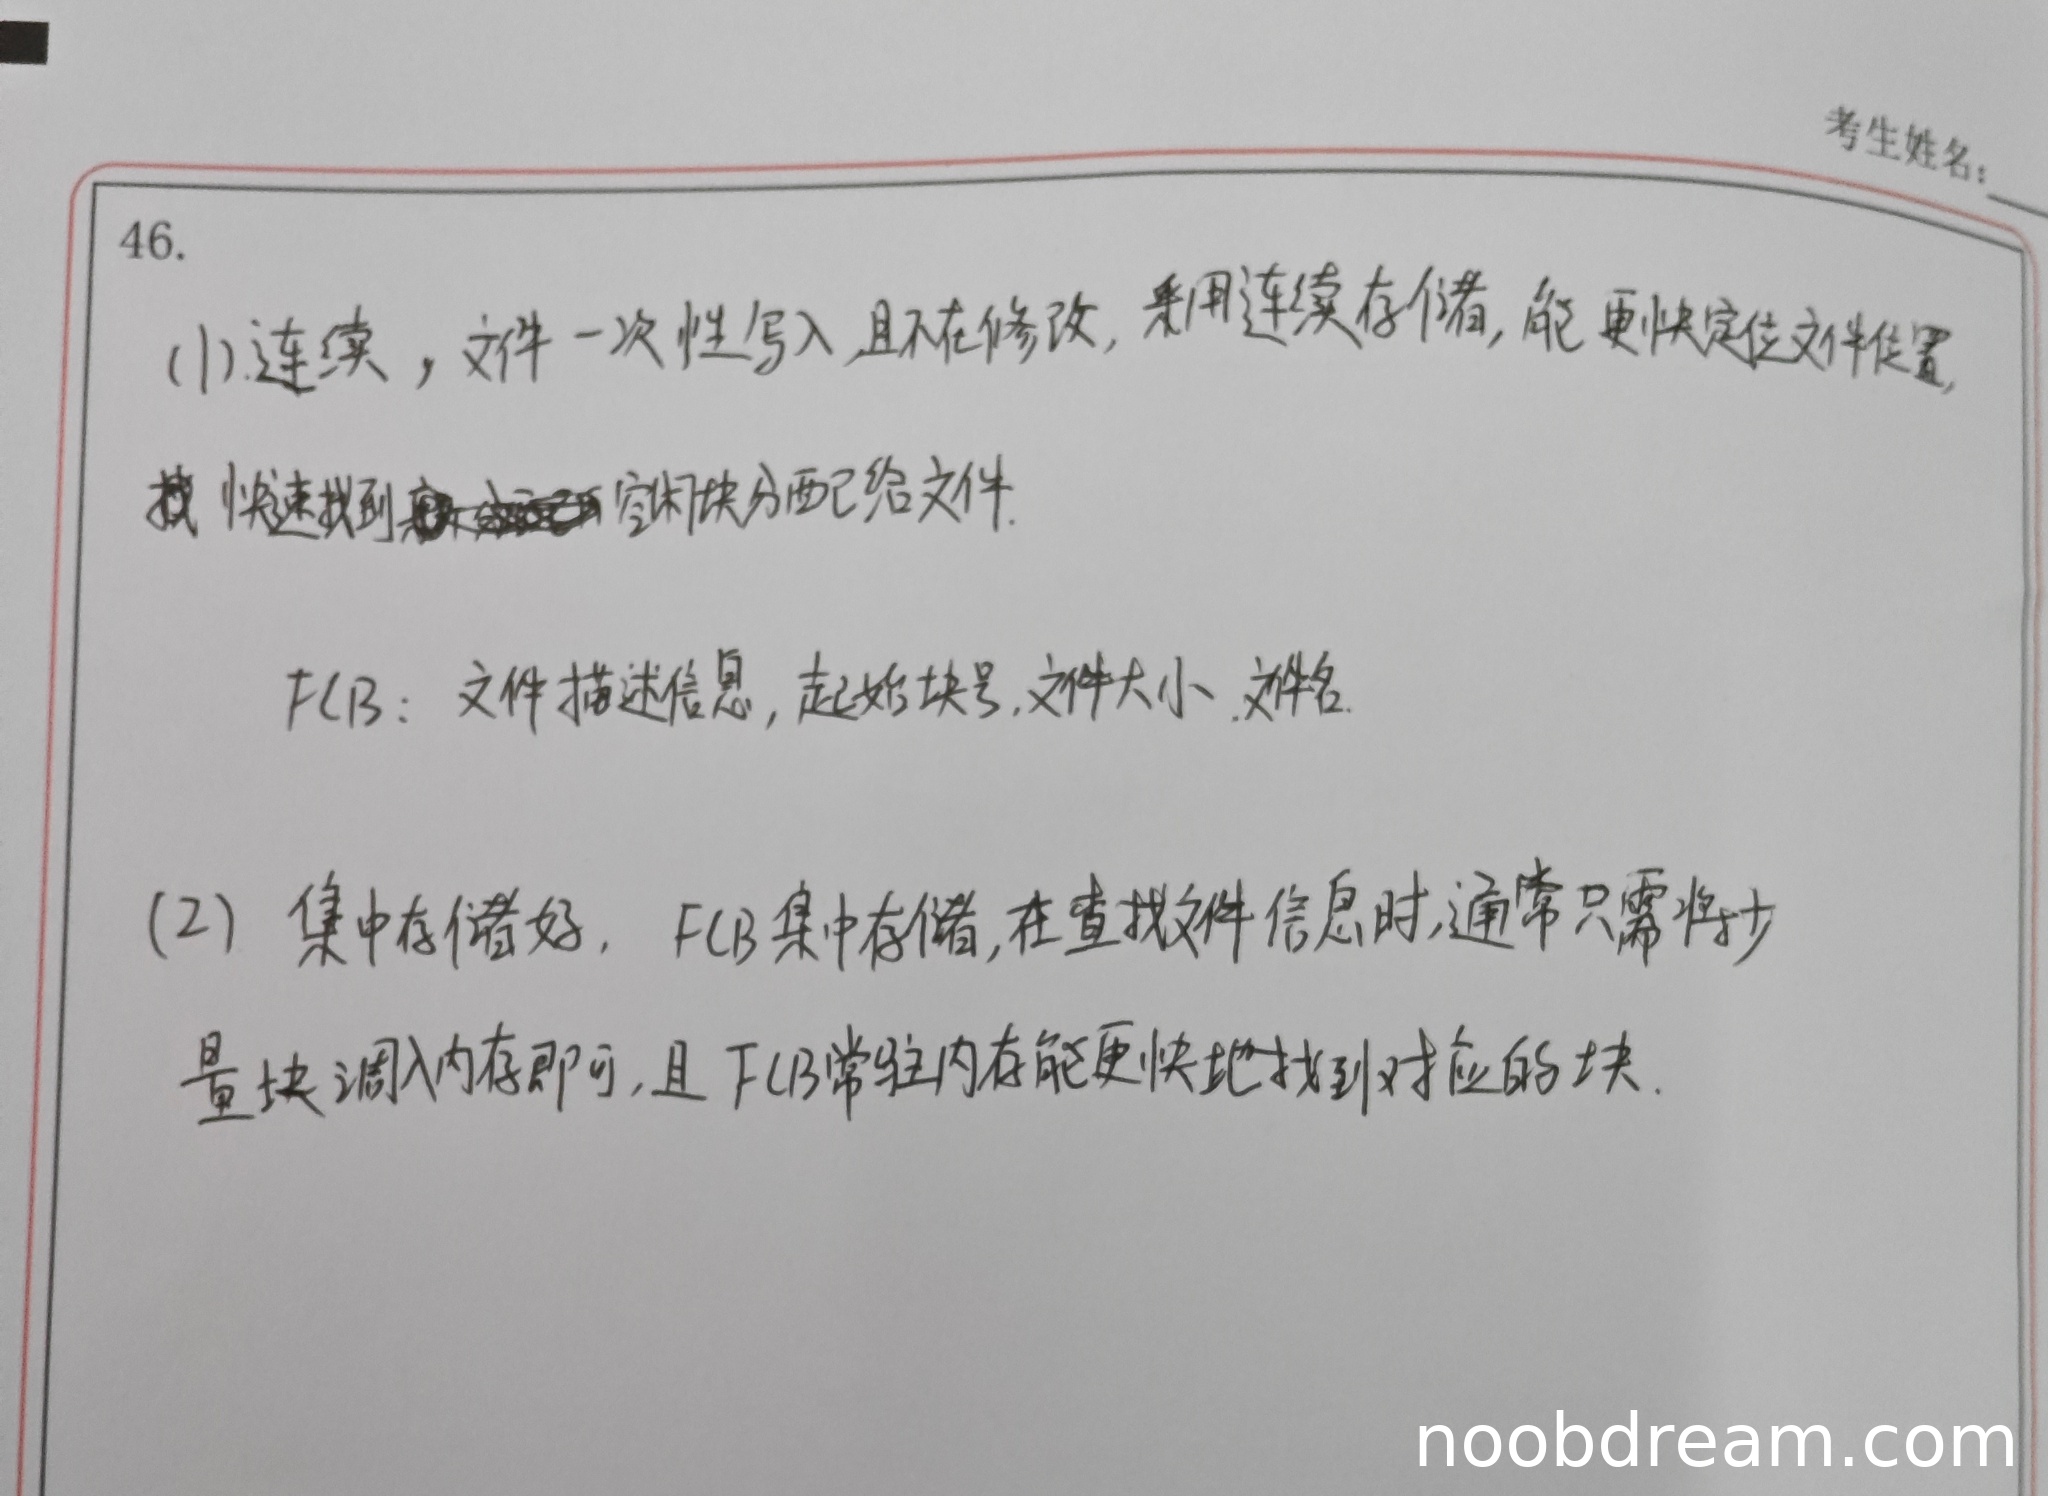 考生姓名：
46.
(1).连续，文件一次性写入，且不在修改，采用连续存储，能更快定位文件位置，
找 快速找到 空闲块分配给文件.
FCB：文件描述信息，起始块号，文件大小，文件名.
(2) 集中存储好. FCB集中存储，在查找文件信息时，通常只需将少
量块调入内存即可，且FCB常驻内存能更快地找到对应的块.
noobdream.com